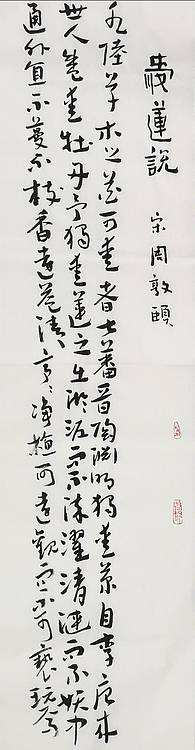 愛蓮說 宋周敦頤
水陸草木之花可愛者甚蕃晉陶淵明獨愛菊自李唐來
世人甚愛牡丹予獨愛蓮之出淤泥而不染濯清漣而不妖中
通外直不蔓不枝香遠益清亭〻淨植可遠觀而不可褻玩焉